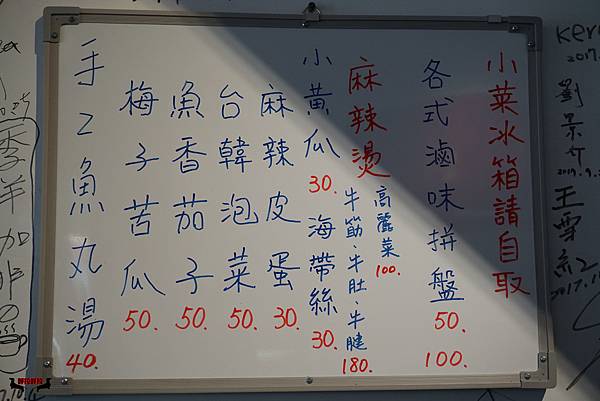 小菜冰箱請自取
各式滷味拼盤 50. 100.
麻辣燙
高麗菜 100.
牛筋、牛肚、牛腱 180.
小黃瓜 30.
海帶絲 30.
麻辣皮蛋 30.
台韓泡菜 50.
魚香茄子 50.
梅子苦瓜 50.
手工魚丸湯 40.
劉景介
王雪紅
2017.
季洋加啡